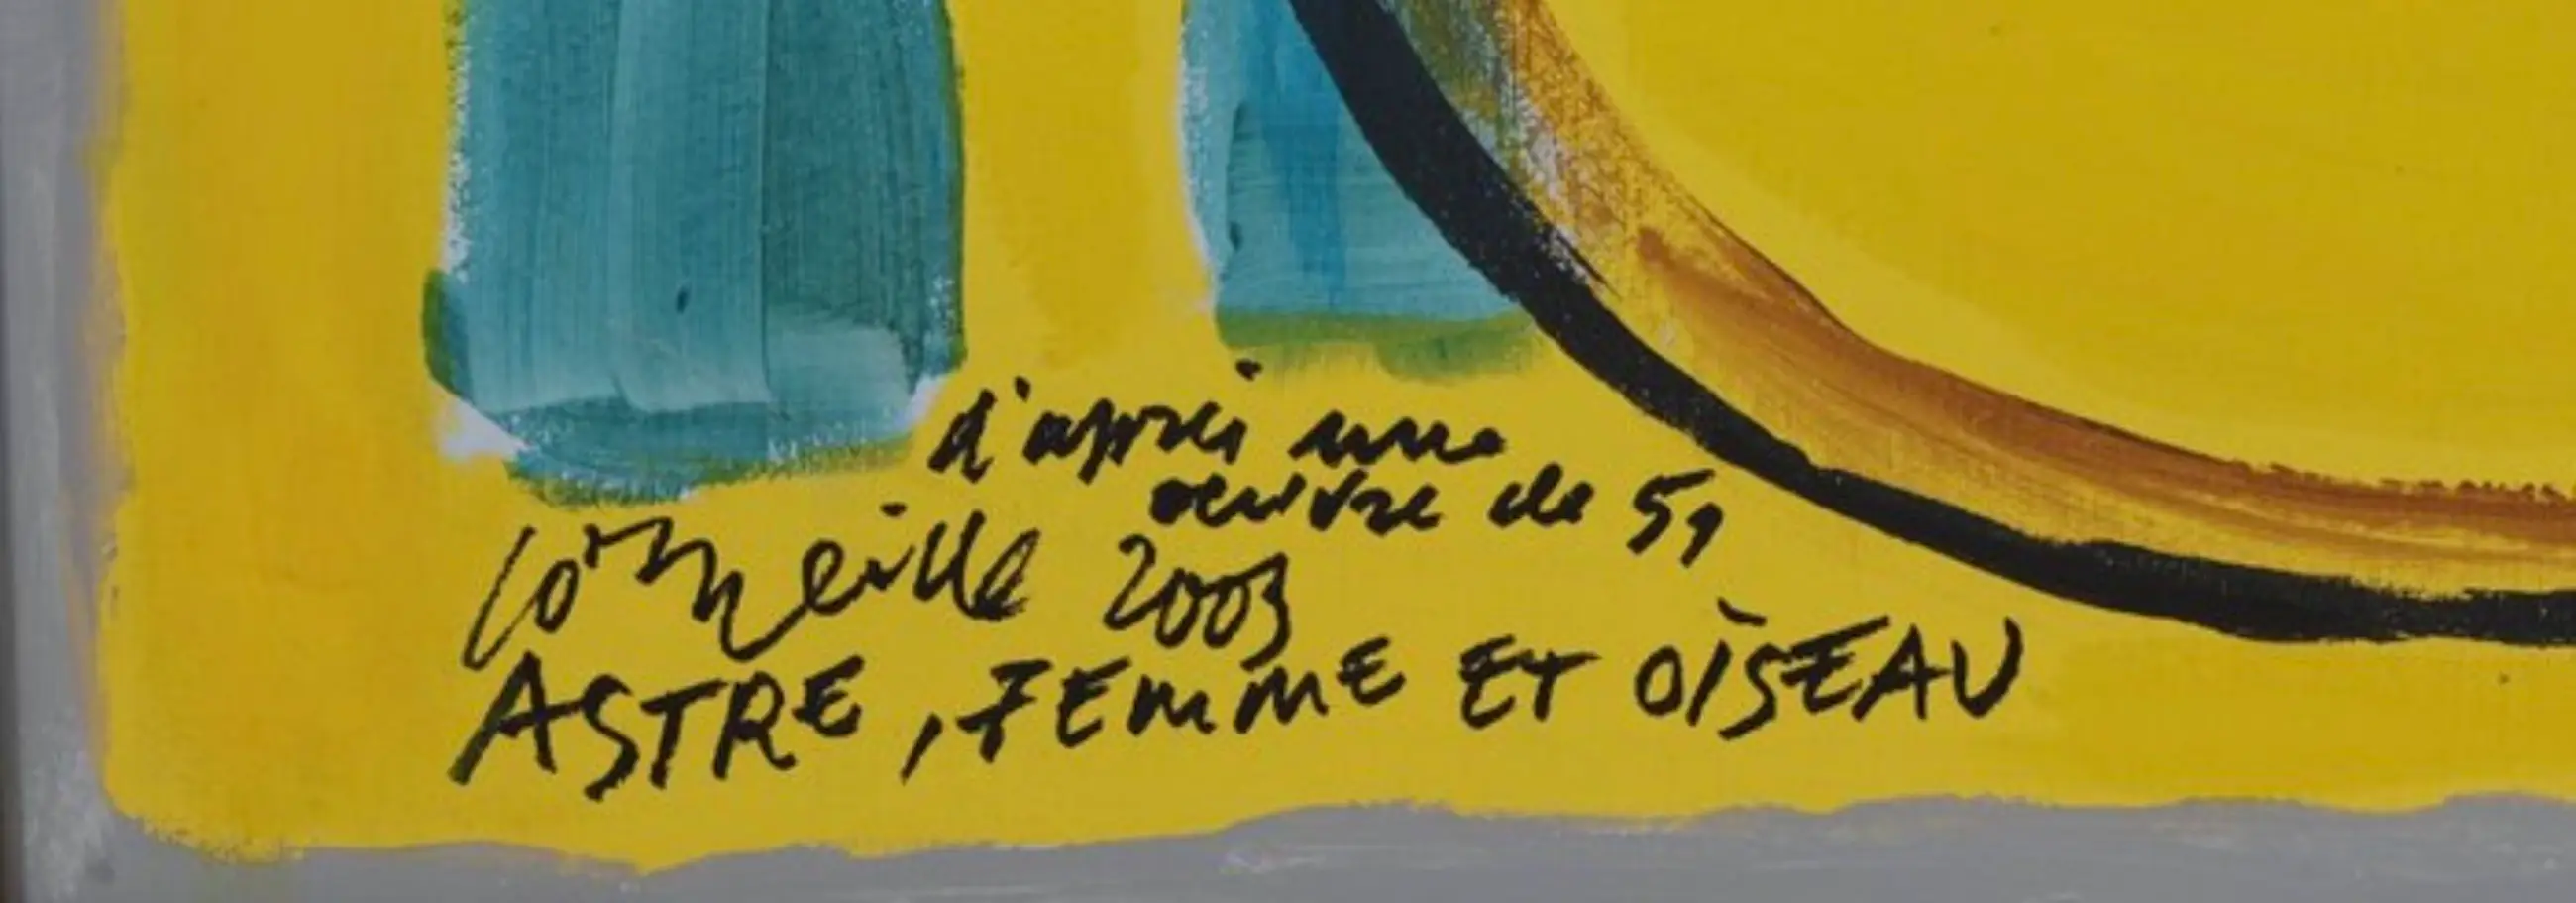 d'après une
oeuvre de 51
Corneille 2003
ASTRE, FEMME ET OISEAU